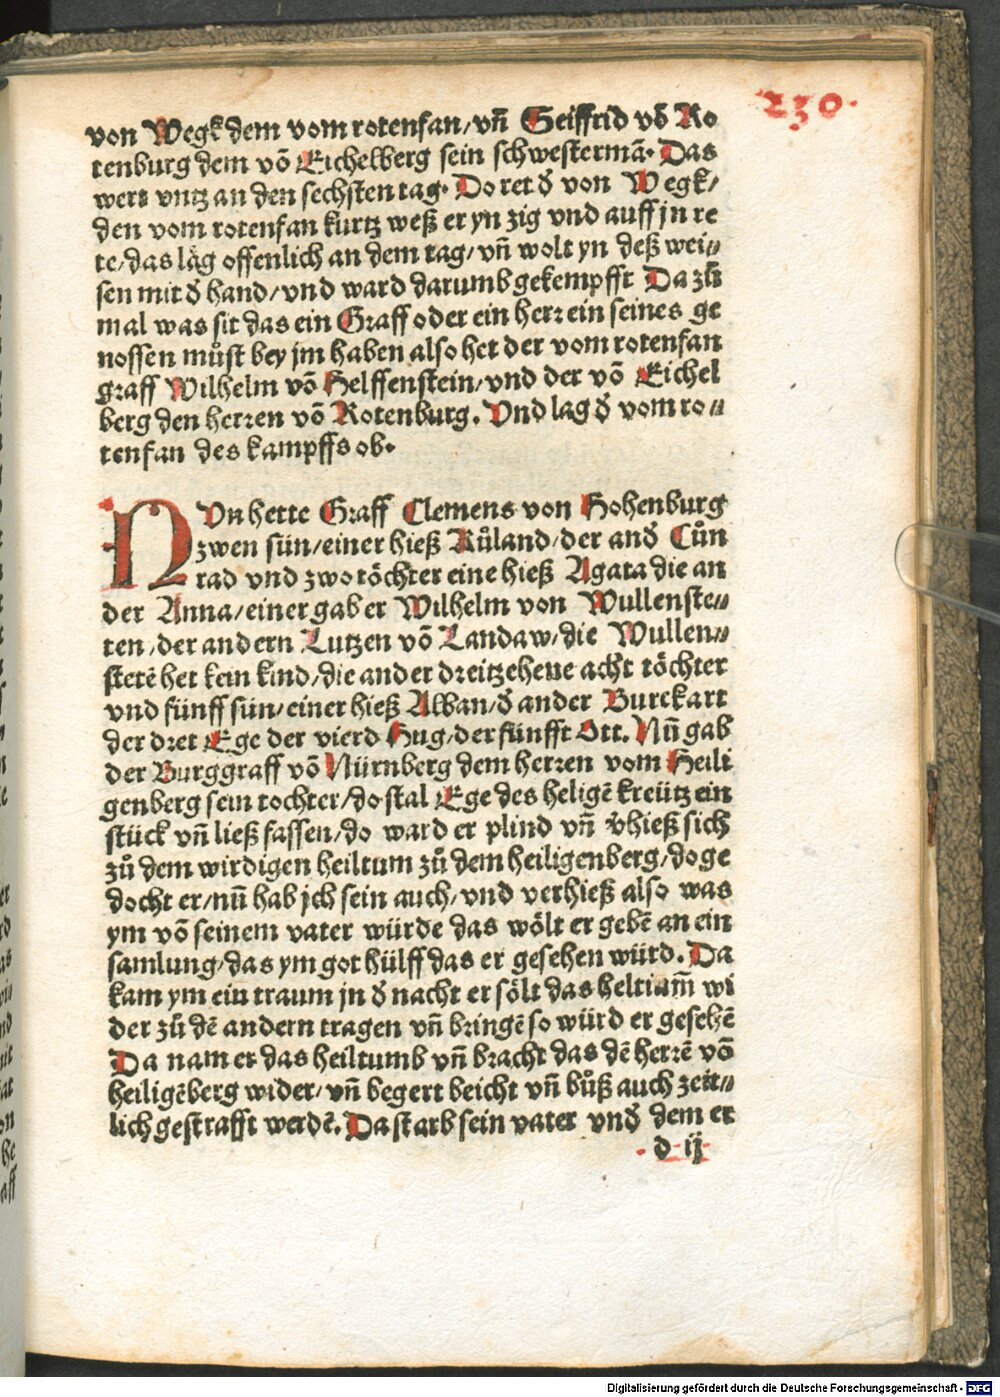 230.
von Wegk dem vom rotenfan/vñ Seiffrid vō Ro
tenburg dem vō Eichelberg sein schwestermā. Das
wert vntz an den sechsten tag. Do ret d̕ von Wegk/
den vom rotenfan kurtz weß er yn zig vnd auff jn re
te/das läg offenlich an dem tag/vñ wolt yn deß wei//
sen mit d̕ hand/vnd ward darumb gekempfft Da zů
mal was sit das ein Graff oder ein herr ein seines ge
nossen můst bey jm haben also het der vom rotenfan
graff Wilhelm vō Helffenstein/vnd der vō Eichel
berg den herren vō Rotenburg. Vnd lag d̕ vom ro//
tenfan des kampffs ob.
NVn hette Graff Clemens von Hohenburg
zwen sün/einer hieß Růland/der and̕ Cůn
rad vnd zwo töchter eine hieß Agata die an
der Anna/einer gab er Wilhelm von Wullenste//
ten/der andern Lutzen vō Landaw/die Wullen//
stetē het kein kind/die ander dreitzehene acht töchter
vnd fünff sün/einer hieß Alban/d̕ ander Burckart
der dret Ege der vierd Hug/der fünfft Ott. Nũ gab
der Burggraff vō Nürnberg dem herren vom Heili
genberg sein tochter/do stal Ege des heligē kreütz ein
stück vñ ließ fassen/do ward er plind vñ v̕hieß sich
zů dem wirdigen heiltum zů dem heiligenberg/do ge
docht er/nũ hab jch sein auch/vnd verhieß also was
ym vō seinem vater würde das wölt er gebē an ein
samlung/das ym got hülff das er gesehen würd. Da
kam ym ein traum jn d̕ nacht er sölt das heltiam̄ wi
der zů dē andern tragen vñ bringē so würd er gesehē
Da nam er das heiltumb vñ bracht das dē herrē vō
heiligēberg wider/vñ begert beicht vñ bůß auch zeit//
lich gestrafft werdē. Da starb sein vater vnd̕ dem er
d ij
Digitalisierung gefördert durch die Deutsche Forschungsgemeinschaft - DFG